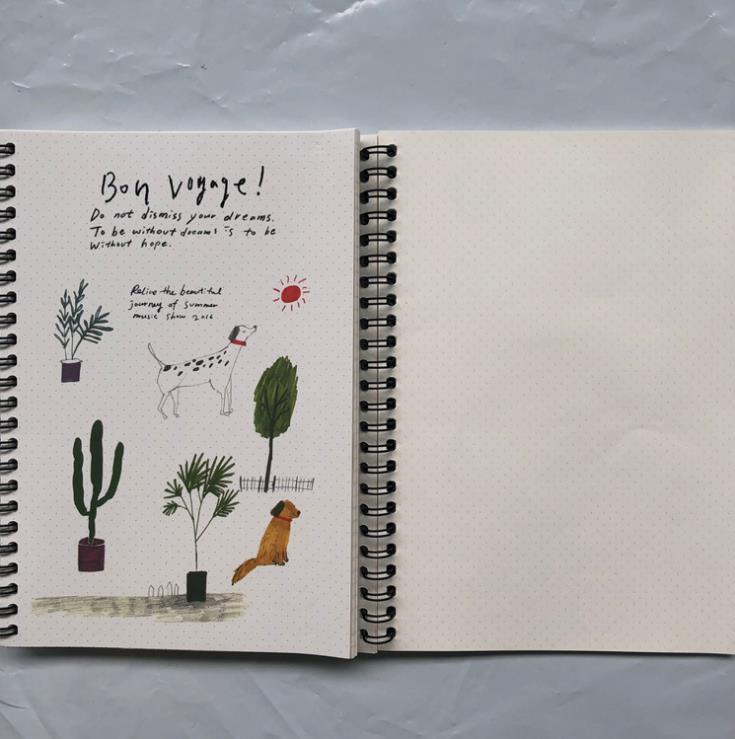 Bon Voyage!
Do not dismiss your dreams.
To be without dreams is to be
without hope.
Relive the beautiful
journey of summer
music show 2016